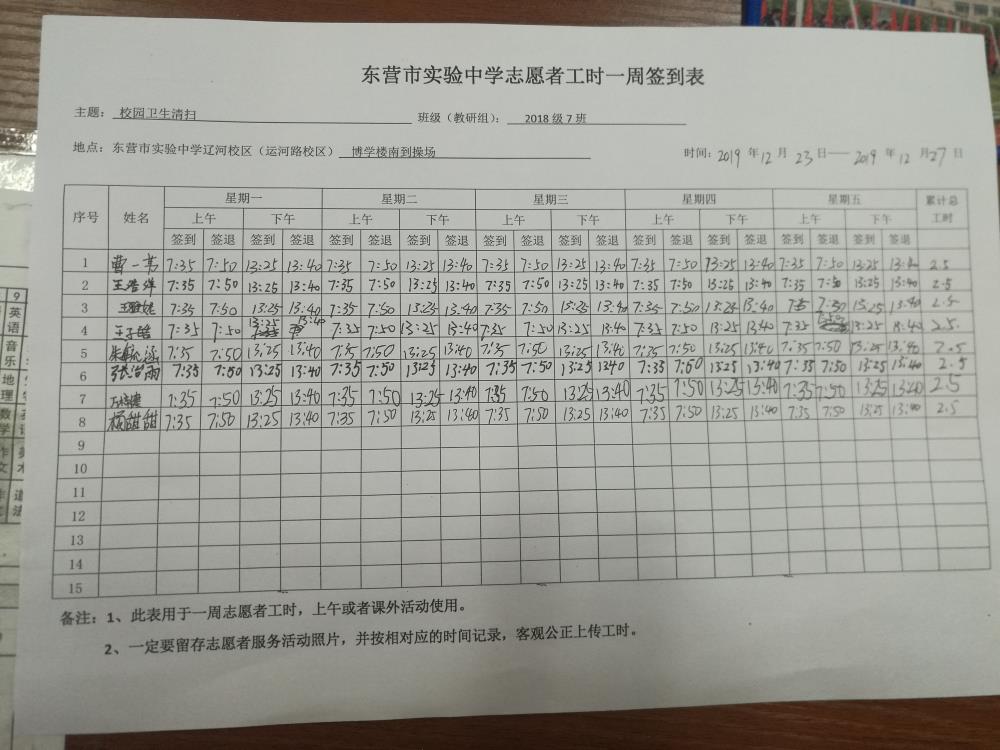 东营市实验中学志愿者工时一周签到表
主题： 校园卫生清扫 班级（教研组）： 2018 级 7 班
地点：东营市实验中学辽河校区（运河路校区） 博学楼南到操场 时间：2019 年 12 月 23 日——2019 年 12 月 27 日
序号 姓名 星期一 星期二 星期三 星期四 星期五 累计总工时
上午 下午 上午 下午 上午 下午 上午 下午 上午 下午
签到 签退 签到 签退 签到 签退 签到 签退 签到 签退 签到 签退 签到 签退 签到 签退 签到 签退 签到 签退
1 曹一苇 7:35 7:50 13:25 13:40 7:35 7:50 13:25 13:40 7:35 7:50 13:25 13:40 7:35 7:50 13:25 13:40 7:35 7:50 13:25 13:40 2.5
2 王浩洋 7:35 7:50 13:25 13:40 7:35 7:50 13:25 13:40 7:35 7:50 13:25 13:40 7:35 7:50 13:25 13:40 7:35 7:50 13:25 13:40 2.5
3 7:35 7:50 13:25 13:40 7:35 7:50 13:25 13:40 7:35 7:50 13:25 13:40 7:35 7:50 13:25 13:40 7:50 13:25 13:40 2.5
4 王子皓 7:35 7:50 13:25 13:40 7:35 7:50 13:25 13:40 7:35 7:50 13:25 13:40 7:35 7:50 13:25 13:40 7:35 7:50 13:25 13:40 2.5
5 7:35 7:50 13:25 13:40 7:35 7:50 13:25 13:40 7:35 7:50 13:25 13:40 7:35 7:50 13:25 13:40 7:35 7:50 13:25 13:40 2.5
6 7:35 7:50 13:25 13:40 7:35 7:50 13:25 13:40 7:35 7:50 13:25 13:40 7:35 7:50 13:25 13:40 7:35 7:50 13:25 13:40 2.5
7 7:35 7:50 13:25 13:40 7:35 7:50 13:25 13:40 7:35 7:50 13:25 13:40 7:35 7:50 13:25 13:40 7:35 7:50 13:25 13:40 2.5
8 杨甜甜 7:35 7:50 13:25 13:40 7:35 7:50 13:25 13:40 7:35 7:50 13:25 13:40 7:35 7:50 13:25 13:40 7:35 7:50 13:25 13:40 2.5
9
10
11
12
13
14
15
备注：1、此表用于一周志愿者工时，上午或者课外活动使用。
2、一定要留存志愿者服务活动照片，并按相对应的时间记录，客观公正上传工时。
9
英语
音乐
地理
数学
作文
美术
道法